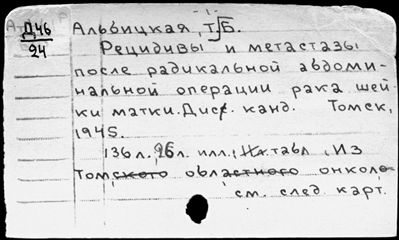 Д 46
24
Альбицкая, Т.Б.
Рецидивы и метастазы
после радикальной абдоми-
нальной операции рака шей-
ки матки. Дис. канд. Томск,
1945.
136 л. 26 л. илл., табл. Из
Томского областного онколо-
см. след. карт.